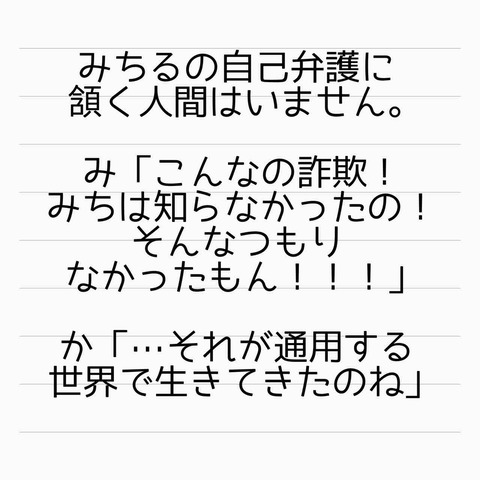 みちるの自己弁護に
頷く人間はいません。
み「こんなの詐欺！
みちは知らなかったの！
そんなつもり
なかったもん！！！」
か「…それが通用する
世界で生きてきたのね」